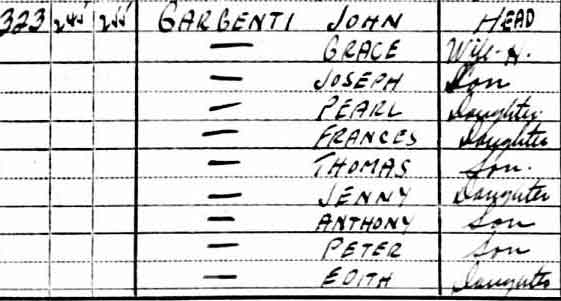 323 245 255 GARGENTI JOHN HEAD
— GRACE Wife-H.
— JOSEPH Son
— PEARL Daughter
— FRANCES Daughter
— THOMAS Son.
— JENNY Daughter
— ANTHONY Son
— PETER Son
— EDITH Daughter